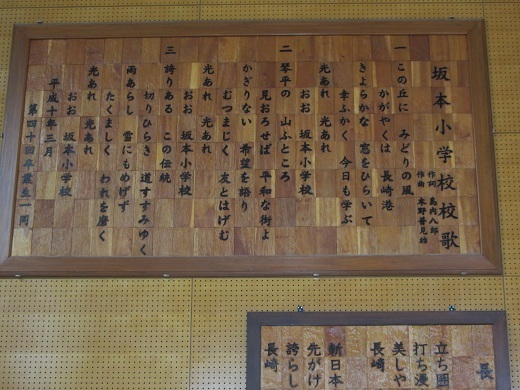 坂本小学校校歌
作詞 島内八郎
作曲 木野普見雄
一 この丘に みどりの風
かがやくは 長崎港
きよらかな 窓をひらいて
幸ふかく 今日も学ぶ
光あれ 光あれ
おお 坂本小学校
二 琴平の 山ふところ
見おろせば 平和な街よ
かぎりない 希望を語り
むつまじく 友とはげむ
光あれ 光あれ
おお 坂本小学校
三 誇りある この伝統
切りひらき 道すすみゆく
雨あらし 雪にもめげず
たくましく われを磨く
光あれ 光あれ
おお 坂本小学校
平成十年三月
第四十回卒業生一同
長
立ち囲
打ち湧
美しや
長崎
新日本
先がけ
誇らし
長崎